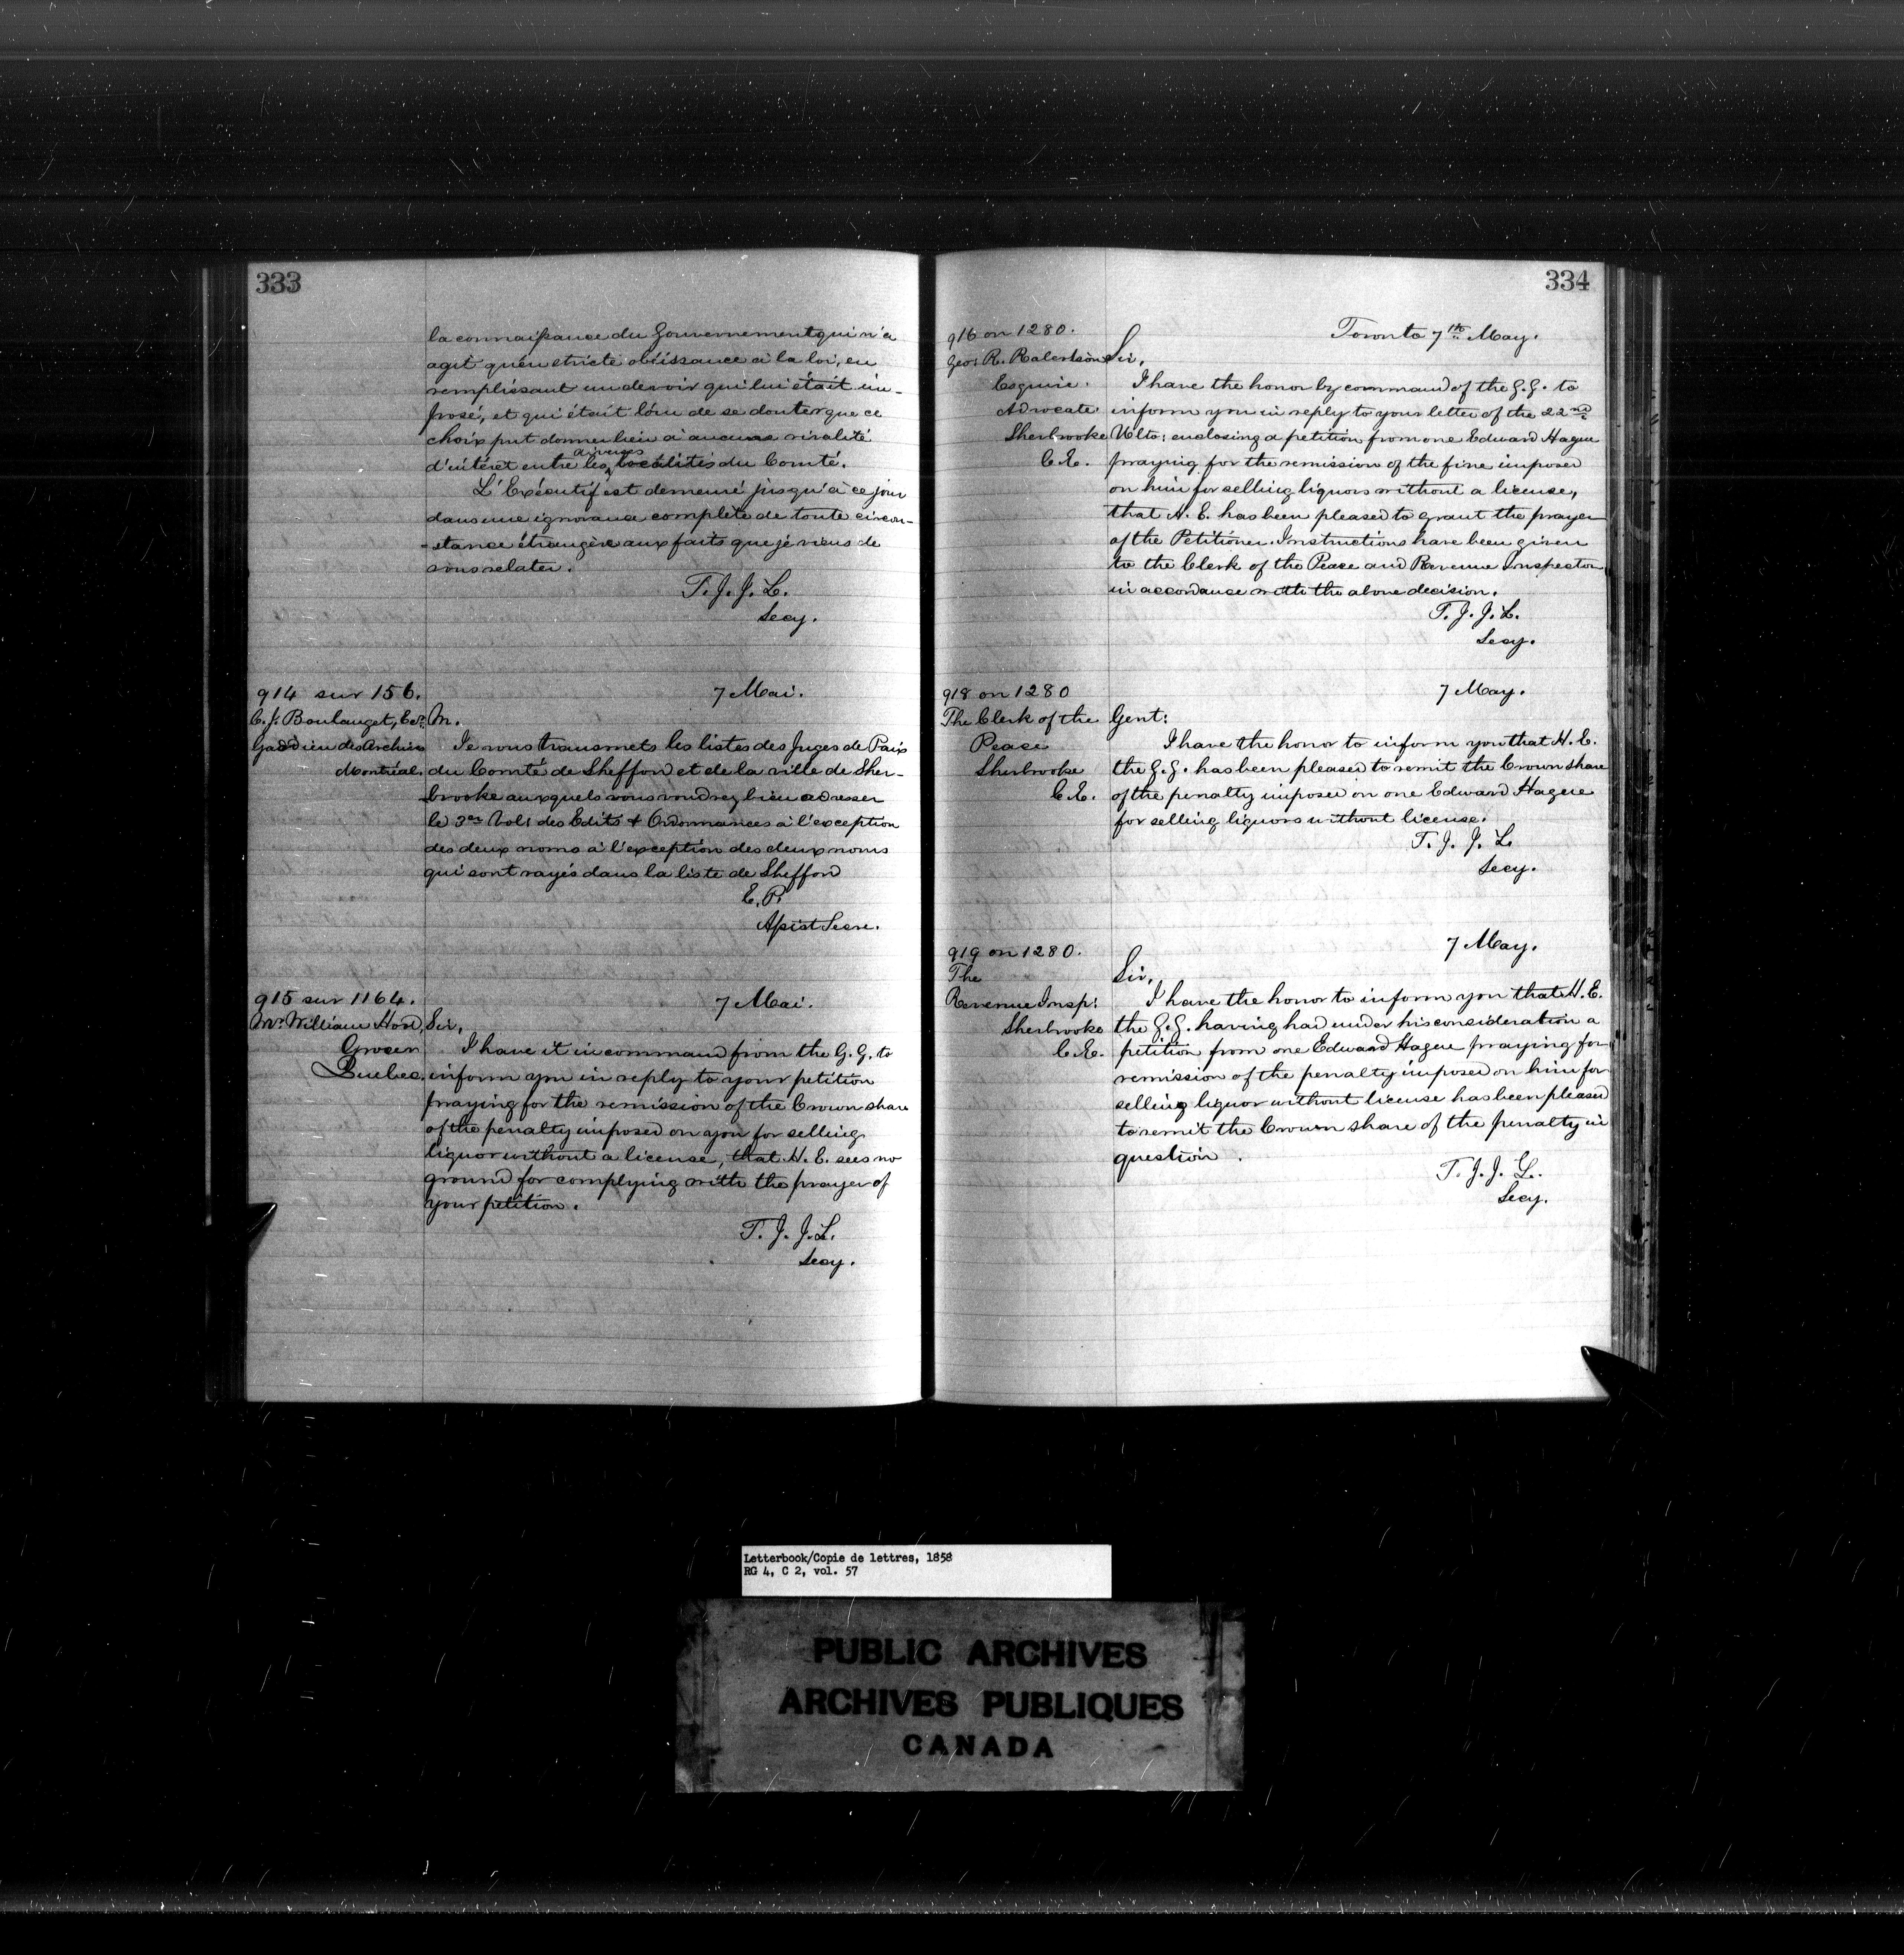 333
la connaissance du Gouvernement qui n'a
agit qu'en stricte obéissance à la loi, en
remplissant un devoir qui lui était im-
posé, et qui était loin de se douter que ce
choix put donner lieu à aucune rivalité
diverses
d'intérêt entre les localités du Comté.
L'Exécutif est demeuré jusqu'à ce jour
dans une ignorance complète de toute circon-
-stance étrangère aux faits que je viens de
vous relater.
T. J. J. L.
Secy.
914 sur 156.
7 Mai.
C. J. Boulanget, Ecr.
M.
Gardien des Archives
Montréal.
Je vous transmets les listes des Juges de Paix
du Comté de Shefford et de la ville de Sher-
brooke auxquels vous voudrez bien adresser
le 3er Vol: des Edits & Ordonnances à l'exception
des deux noms à l'exception des deux noms
qui sont rayés dans la liste de Shefford
E. P.
Assist Secre.
915 sur 1164.
7 Mai.
Mr. William Hood,
Sir,
Grocer
Quebec.
I have it in command from the G. G. to
inform you in reply to your petition
praying for the remission of the Crown share
of the penalty imposed on you for selling
liquor without a license, that H. E. sees no
ground for complying with the prayer of
your petition.
T. J. J. L.
Secy.
334
916 on 1280.
Toronto 7th May.
Geo: R. Robertson
Sir,
Esquire.
Advocate
Sherbrooke
C. E.
I have the honor by command of the G. G. to
inform you in reply to your letter of the 22nd
Ulto: enclosing a petition from one Edward Hague
praying for the remission of the fine imposed
on him for selling liquors without a license,
that H. E. has been pleased to grant the prayer
of the Petitioner. Instructions have been given
to the Clerk of the Peace and Revenue Inspector
in accordance with the above decision.
T. J. J. L.
Secy.
918 on 1280
7 May.
The Clerk of the
Peace
Sherbrooke
C. E.
Gent:
I have the honor to inform you that H. E.
the G. G. has been pleased to remit the Crown share
of the penalty imposed on one Edward Hague
for selling liquors without license.
T. J. J. L.
Secy.
919 on 1280.
7 May.
The
Revenue Insp:
Sherbrooke
C. E.
Sir,
I have the honor to inform you that H. E.
the G. G. having had under his consideration a
petition from one Edward Hague praying for
remission of the penalty imposed on him for
selling liquor without license has been pleased
to remit the Crown share of the penalty in
question.
T. J. J. L.
Secy.
Letterbook/Copie de lettres, 1858
RG 4, C 2, vol. 57
PUBLIC ARCHIVES
ARCHIVES PUBLIQUES
CANADA